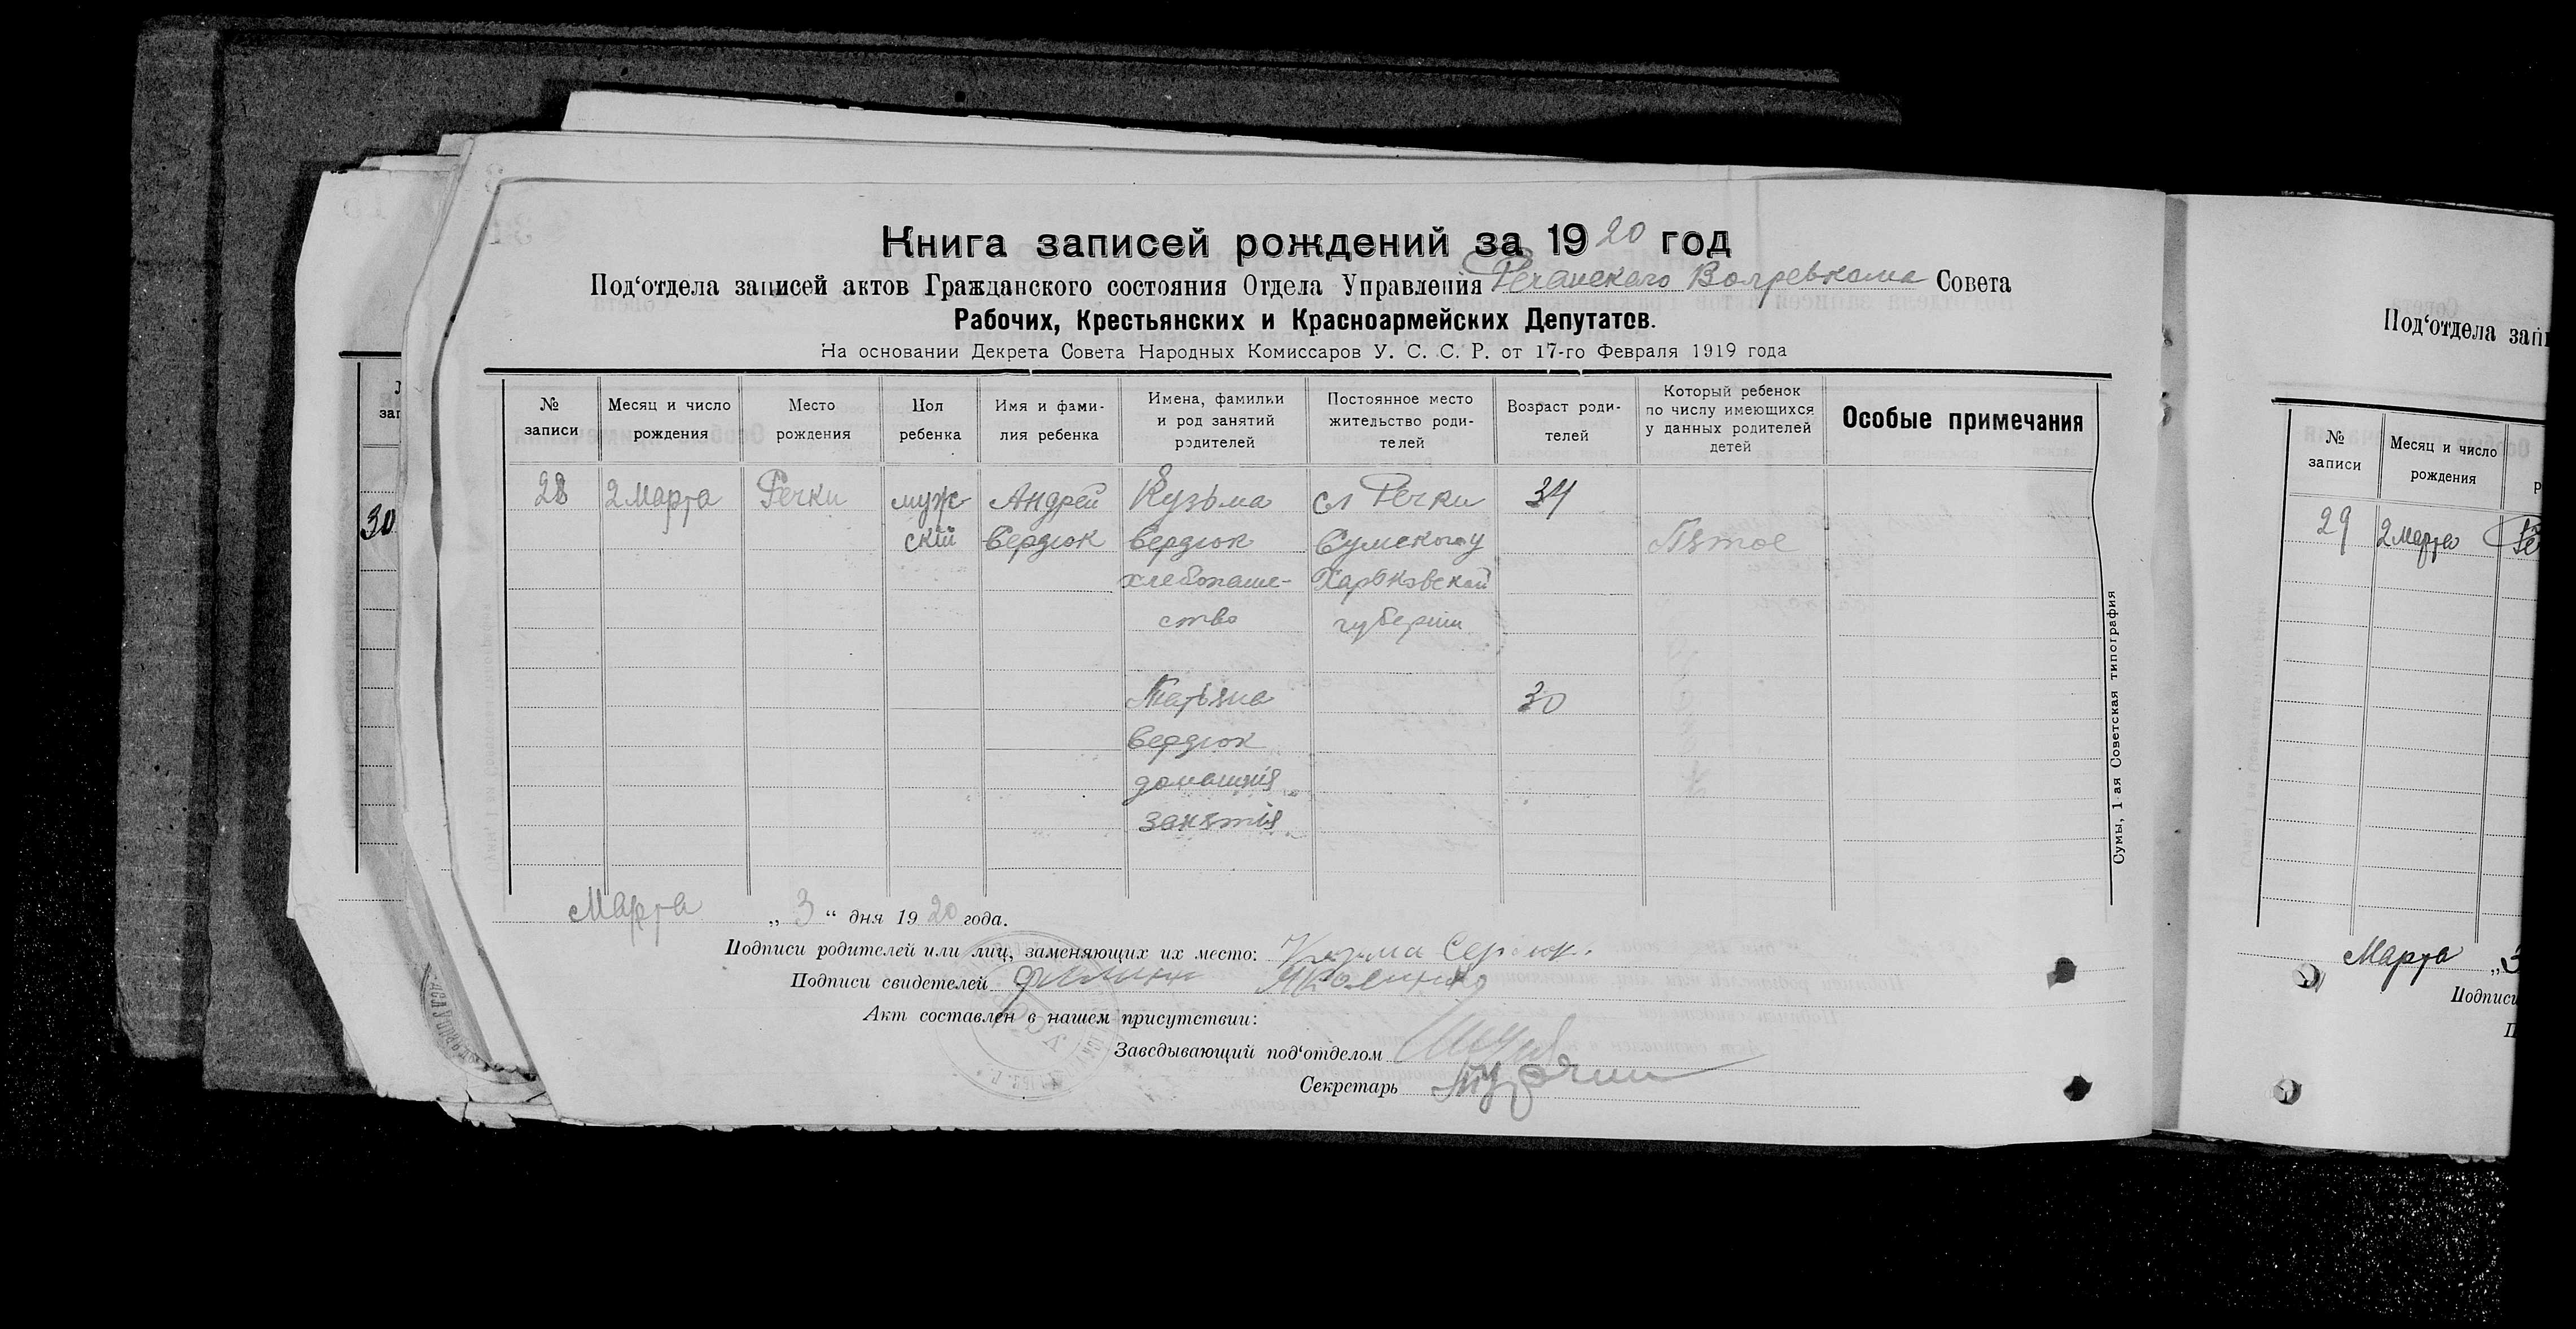 Книга записей рождений за 1920 год
Под‘отдела записей актов Гражданского состояния Отдела Управления Речанского Волревкома Совета
Рабочих, Крестьянских и Красноармейских Депутатов.
На основании Декрета Совета Народных Комиссаров У. С. С. Р. от 17-го Февраля 1919 года
№ записи
Месяц и число рождения
Место рождения
Пол ребенка
Имя и фами-
лия ребенка
Имена, фамилии
и род занятий
родителей
Постоянное место
жительство роди-
телей
Возраст роди-
телей
Который ребенок
по числу имеющихся
у данных родителей
детей
Особые примечания
28 2 Марта Речки муж Андрей Кузьма сл Речки 34
скій Сердюк Сердюк Сумского у Пятое
хлебопаше- Харьковской
ство губерніи
Татьяна 30
Сердюк
домашнія
занятія
Марта „ 3 “ дня 1920 года.
Подписи родителей или лиц, заменяющих их место: Кузма Сердюк.
Подписи свидетелей
Акт составлен в нашем присутствии:
Заведывающий под‘отделом
Секретарь
Сумы, 1-ая Советская типография
зап
30
Под‘отдела запи
№ записи
Месяц и число рождения
29 2 Марта Ре
Марта „3
Подписи